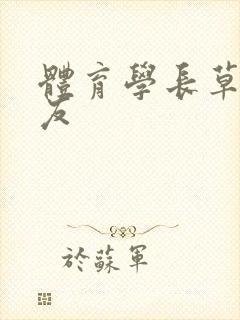 體育學長草
友
於蘇軍